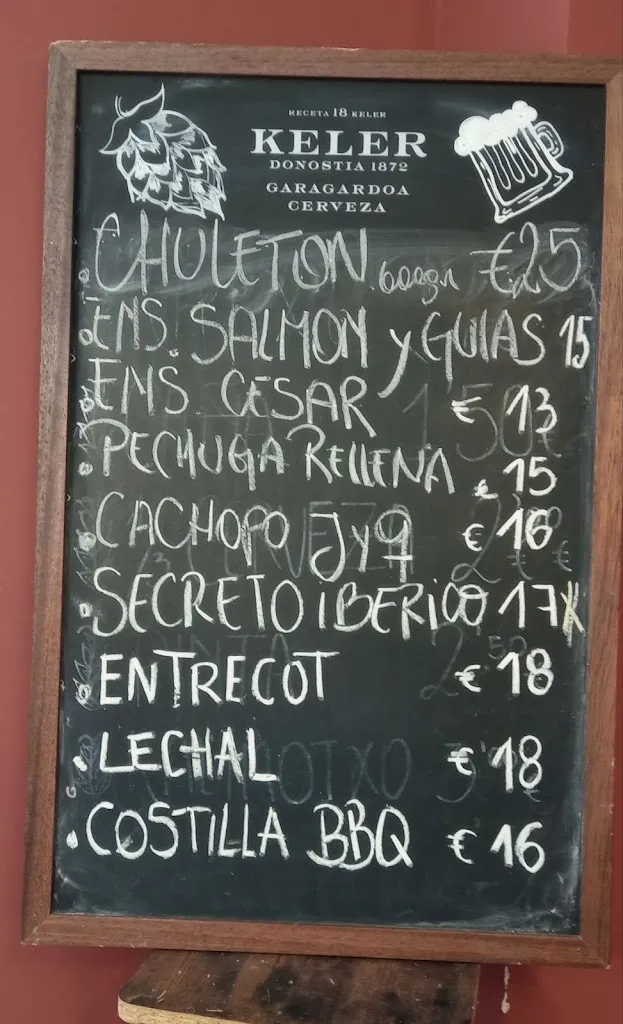 RECETA 18 KELER
KELER
DONOSTIA 1872
GARAGARDOA
CERVEZA
CHULETON 600gr €25
ENS. SALMON y GULAS 15
ENS. CESAR € 13
PECHUGA RELLENA € 15
CACHOPO J y q € 16
SECRETO iBERiCO 17
ENTRECOT € 18
LECHAL € 18
COSTILLA BBQ € 16